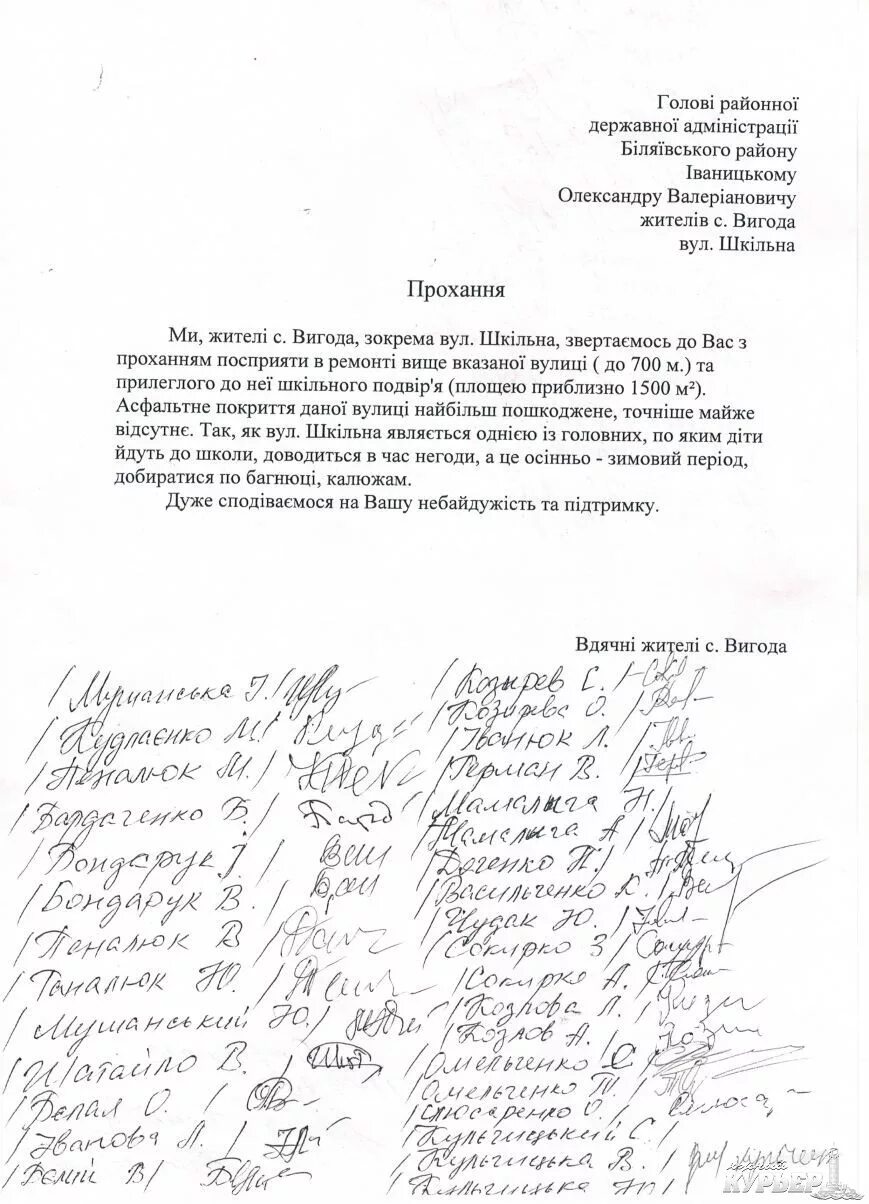 Голові районної
державної адміністрації
Біляївського району
Іваницькому
Олександру Валеріановичу
жителів с. Вигода
вул. Шкільна
Прохання
Ми, жителі с. Вигода, зокрема вул. Шкільна, звертаємось до Вас з
проханням посприяти в ремонті вище вказаної вулиці ( до 700 м.) та
прилеглого до неї шкільного подвір'я (площею приблизно 1500 м²).
Асфальтне покриття даної вулиці найбільш пошкоджене, точніше майже
відсутнє. Так, як вул. Шкільна являється однією із головних, по яким діти
йдуть до школи, доводиться в час негоди, а це осінньо - зимовий період,
добиратися по багнюці, калюжам.
Дуже сподіваємося на Вашу небайдужість та підтримку.
Вдячні жителі с. Вигода
/ Кудлаєнко М. /
/ Пеналюк М. /
/ Бондарук В. /
/ Пеналюк В /
/ Мушанський Ю. /
/ Шатайло В. /
/ Белая О. /
/ Іванова Л. /
/ Козырев С. /
/ Козирєва О. /
/ Іванюк Л. /
/ Герман В. /
/ Мамалыга Н. /
/ Мамалыга А /
/ Васильченко К. /
/ Чудак Ю. /
/ Сокирко З /
/ Сокирко А. /
/ Козлова Л. /
/ Козлов А. /
/ Омельченко С /
/ Омельченко Т. /
/ Слюсаренко О. /
/ Кульчицький С. /
/ Кульчицька В. /
КУРЬЕР